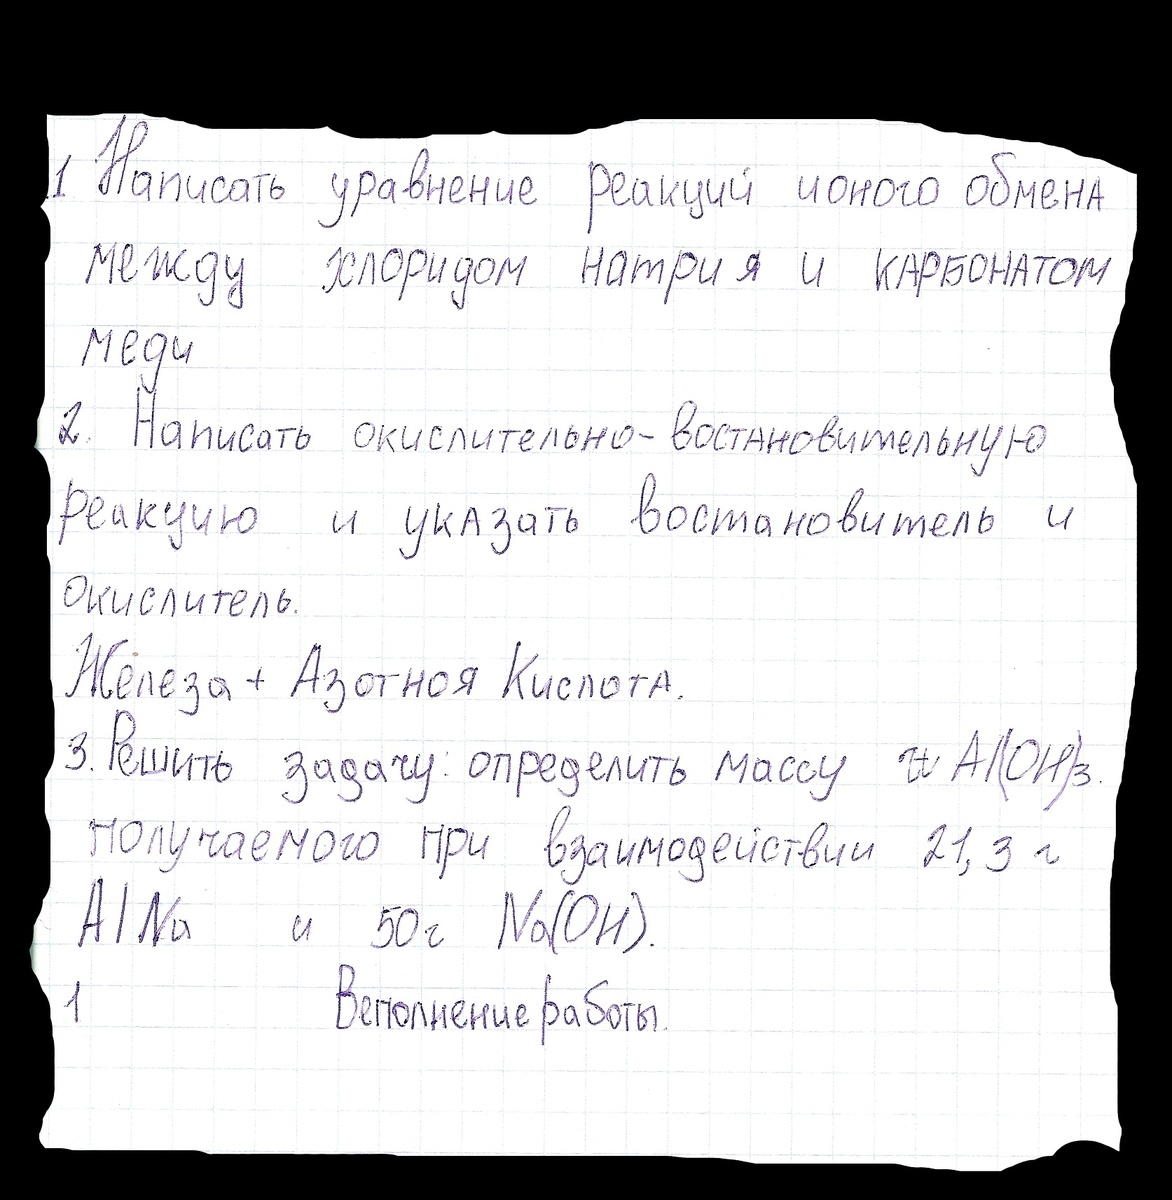 1 Написать уравнение реакций ионого обмена
между хлоридом натрия и карбонатом
меди
2. Написать окислительно-востановительную
реакцию и указать востановитель и
окислитель.
Железа + Азотноя Кислота.
3. Решить задачу: определить массу Al(OH)3.
получаемого при взаимодействии 21,3 г
AlNa и 50г Na(OH).
1 Веполнение работы.